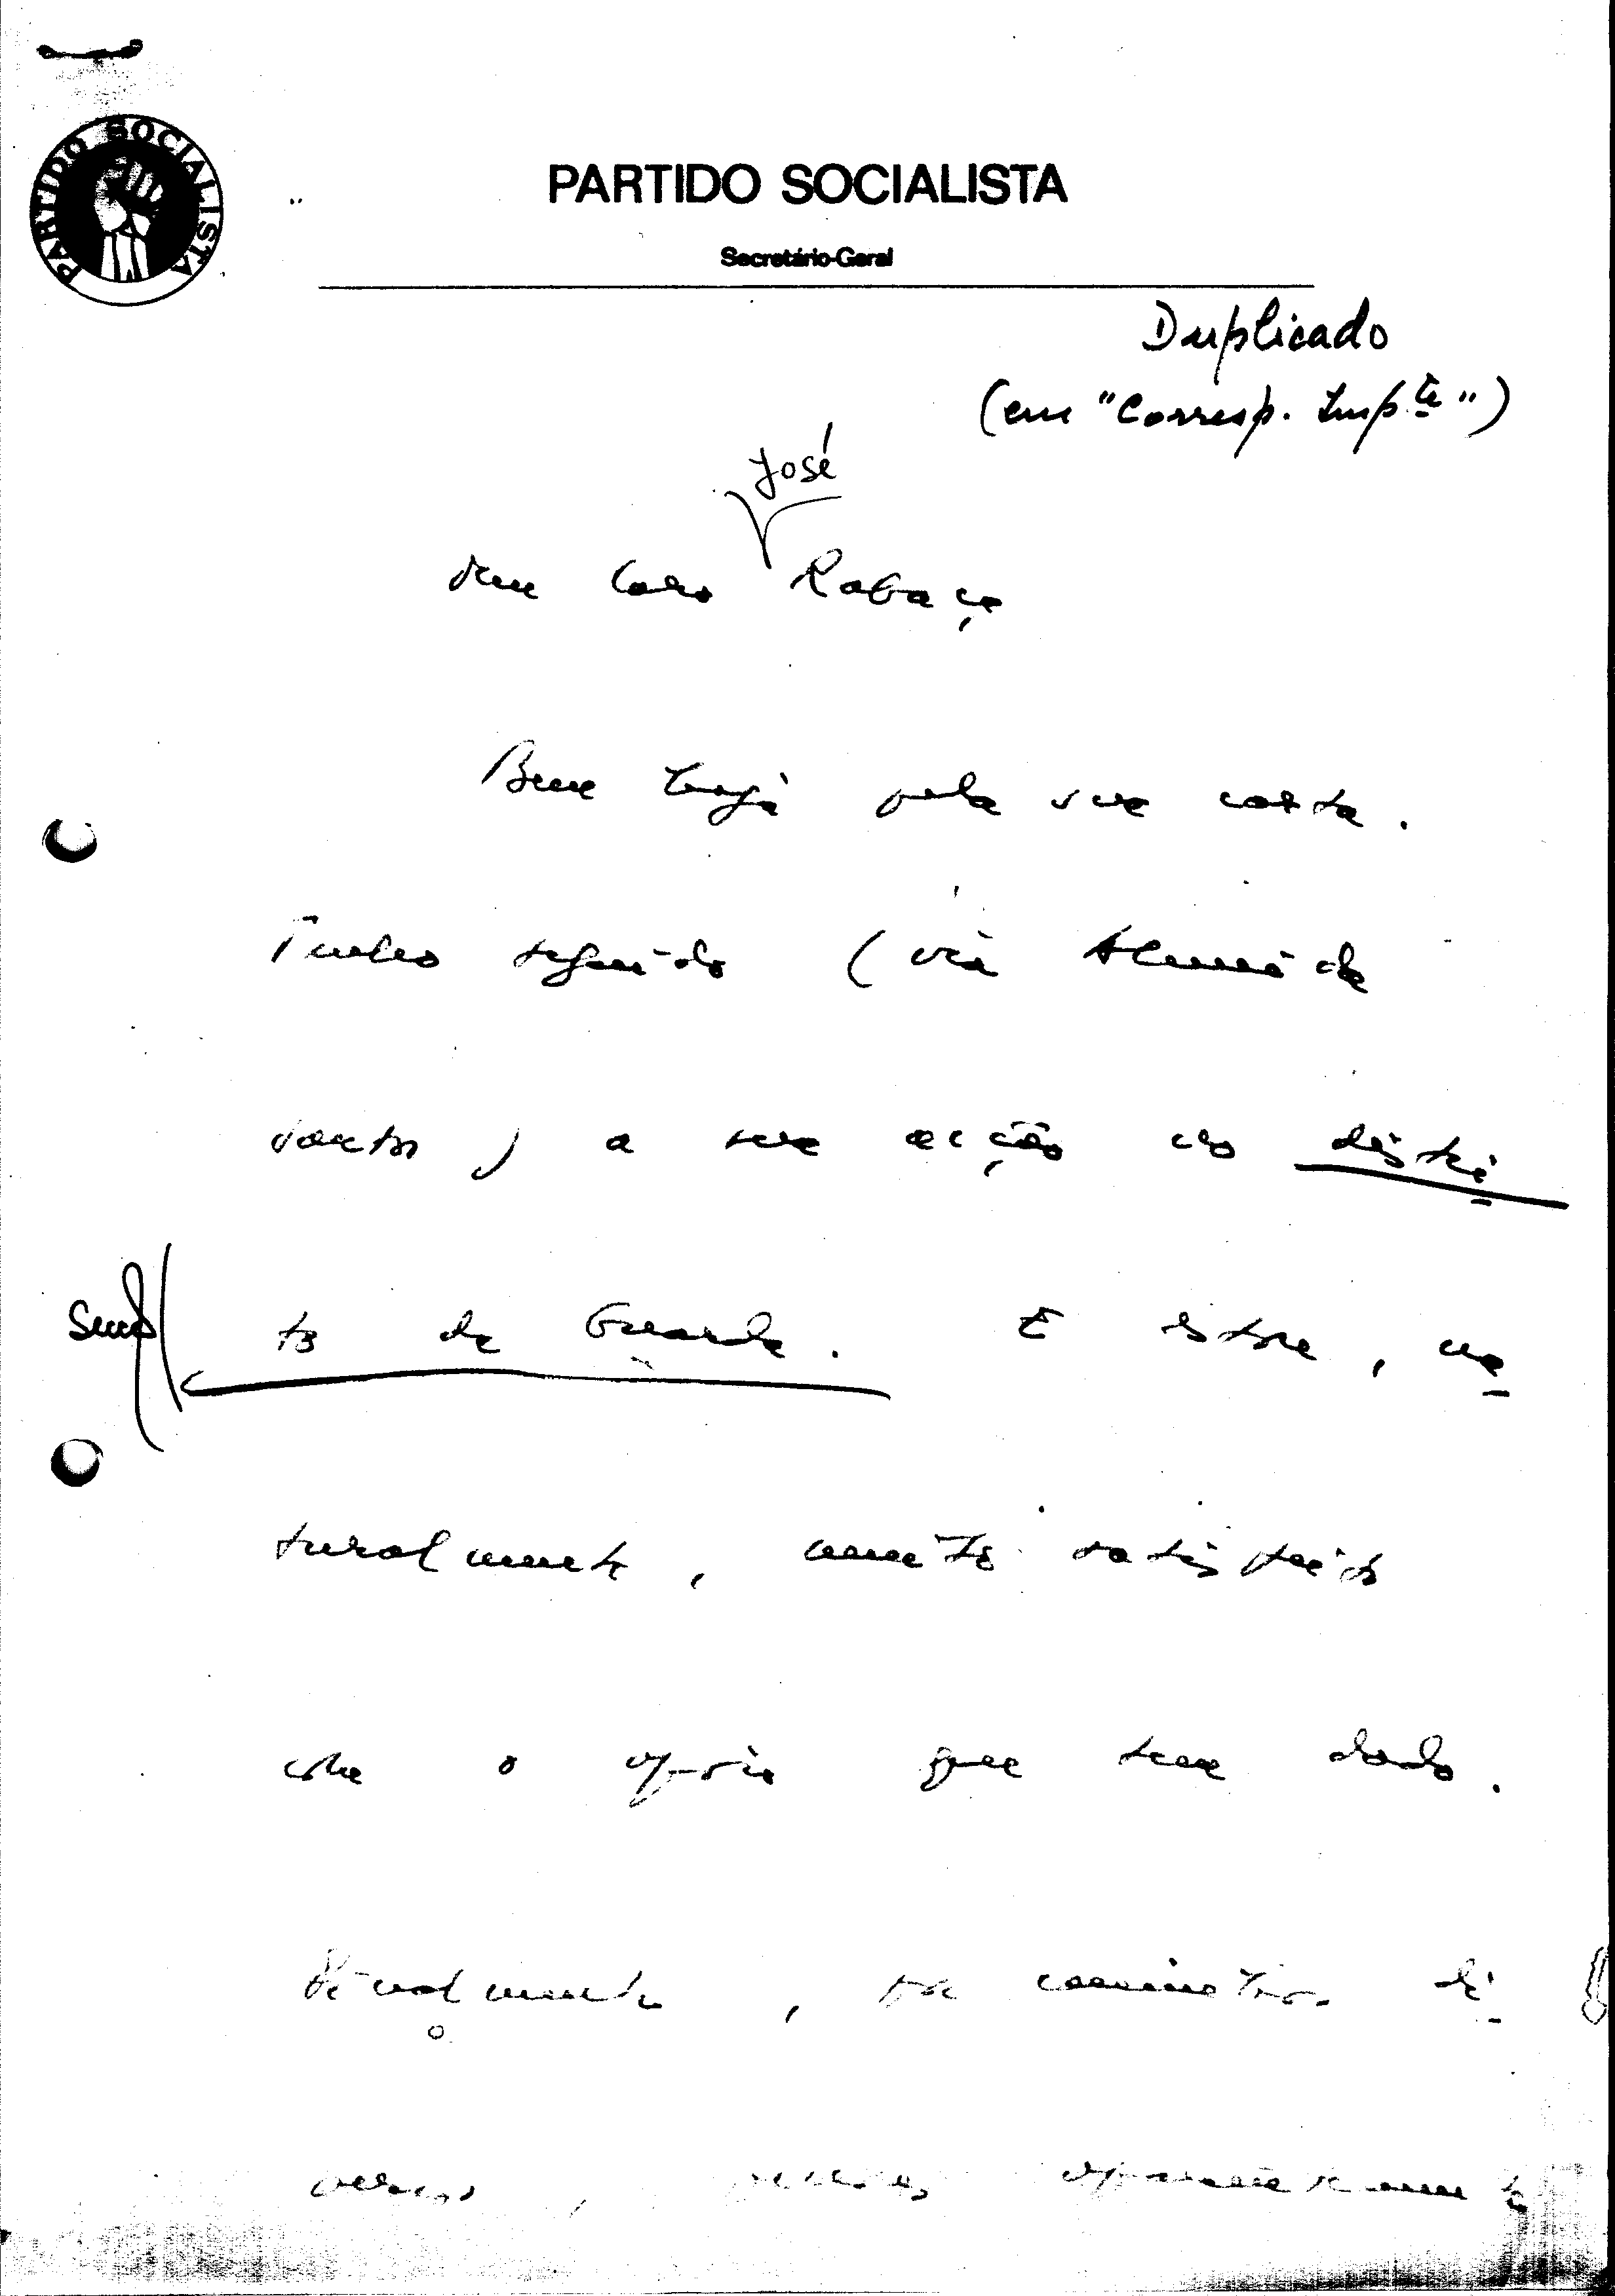 PARTIDO SOCIALISTA
PARTIDO SOCIALISTA
Secretário-Geral
Duplicado
(em "Corresp. Impte")
José
Meu Caro Rabaça
Bem haja pela sua carta.
Tenho seguido (via Almeida
Santos) a sua acção no distri
to da Guarda. E estou, na
turalmente, muito satisfeito
com o apoio que tem dado.
Finalmente, por caminhos di
versos, aparentemente